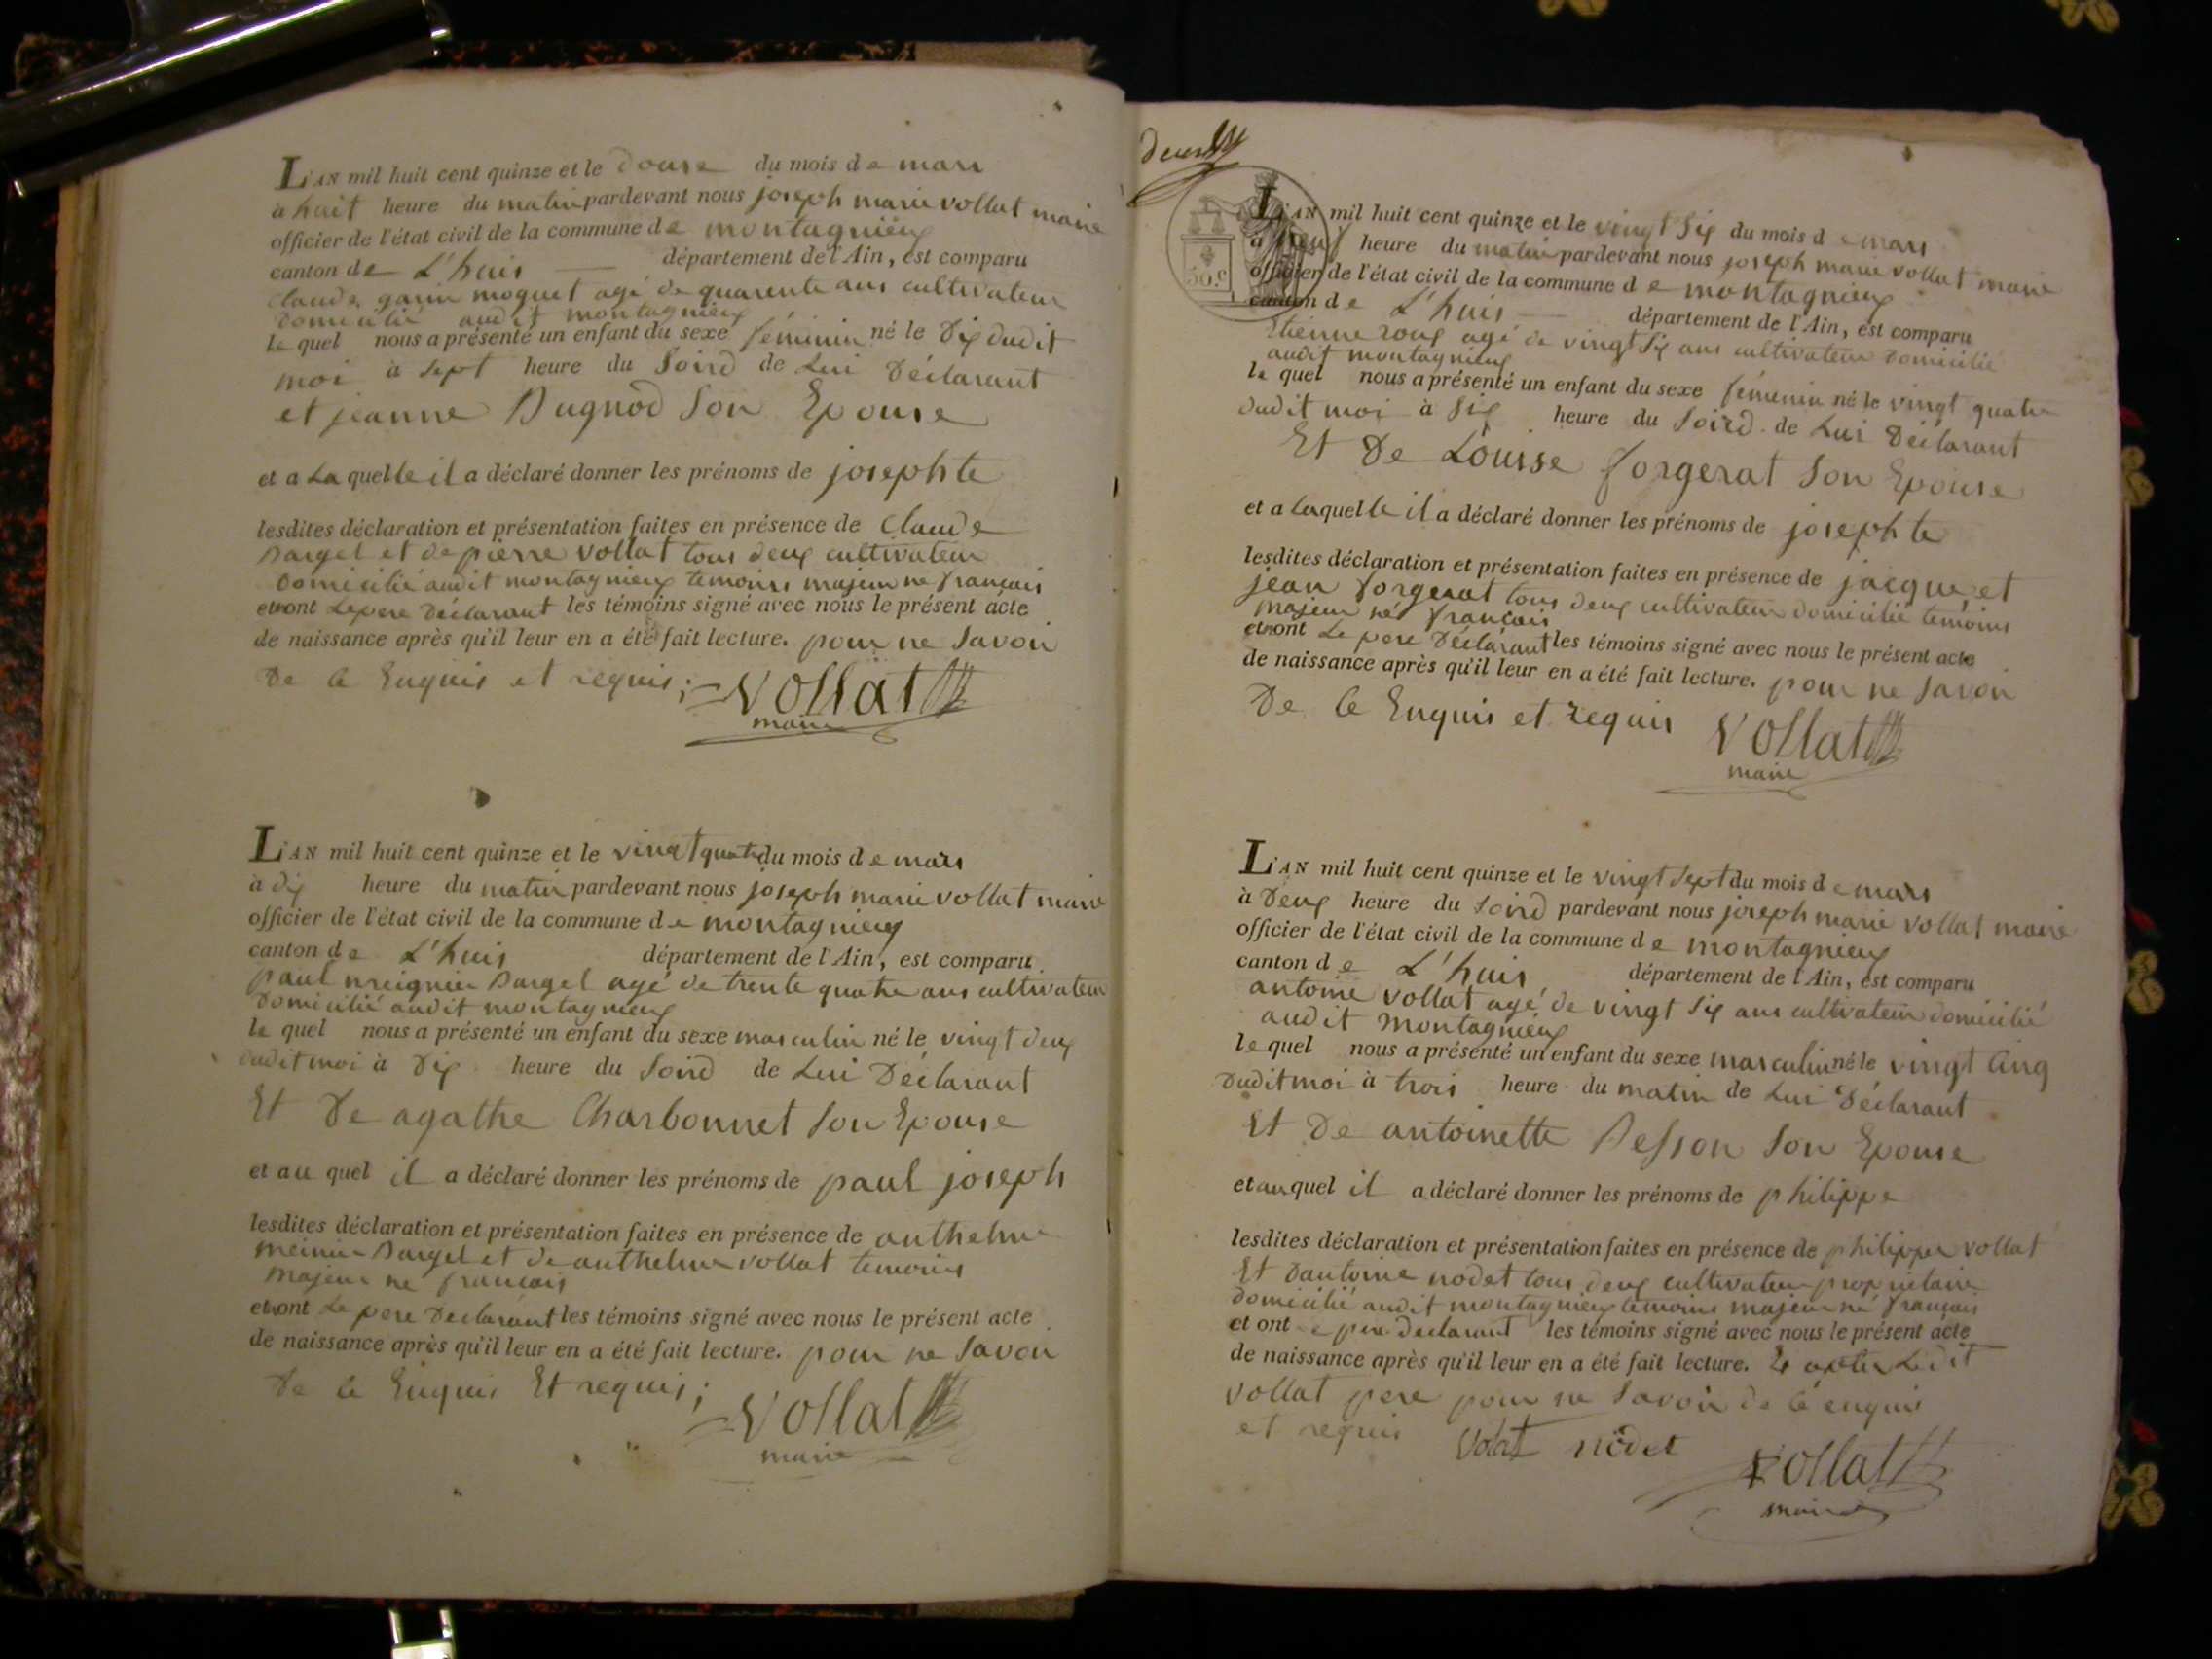 L'AN mil huit cent quinze et le douse du mois de mars
à huit heure du matin pardevant nous joseph marie vollat maire
officier de l'état civil de la commune de montagnieux
canton de L'huis département de l'Ain, est comparu
Claude garin moquet agé de quarente ans cultivateur
domicilié audit montagnieux
le quel nous a présenté un enfant du sexe féminin né le dix dudit
moi à sept heure du soird de Lui Déclarant
et jeanne Dugnod son Epouse
et a Laquelle il a déclaré donner les prénoms de josephte
lesdites déclaration et présentation faites en présence de Claude
et de pierre vollat tous deux cultivateur
domicilié audit montagnieux temoins majeur ne francais
et ont Le pere Déclarant les témoins signé avec nous le présent acte
de naissance après qu'il leur en a été fait lecture. pour ne savoir
de ce Enquis et requis; Vollat
maire
L'AN mil huit cent quinze et le vingt quatre du mois de mars
à dix heure du matin pardevant nous joseph marie vollat maire
officier de l'état civil de la commune de montagnieux
canton de L'huis département de l'Ain, est comparu
paul agé de trente quatre ans cultivateur
domicilié audit montagnieux
le quel nous a présenté un enfant du sexe masculin né le vingt deux
dudit moi à dix heure du soird de Lui Déclarant
Et De agathe Charbonnet son Epouse
et au quel il a déclaré donner les prénoms de paul joseph
lesdites déclaration et présentation faites en présence de anthelme
et de anthelme vollat temoins
majeur ne francais
et ont Le pere Déclarant les témoins signé avec nous le présent acte
de naissance après qu'il leur en a été fait lecture. pour ne savoir
de ce Enquis Et requis; Vollat
maire
50 c
L'AN mil huit cent quinze et le vingt six du mois de mars
à neuf heure du matin pardevant nous joseph marie vollat maire
officier de l'état civil de la commune de montagnieux
canton de L'huis département de l'Ain, est comparu
Etienne roux agé de vingt six ans cultivateur domicilié
audit montagnieux
le quel nous a présenté un enfant du sexe féminin né le vingt quatre
dudit moi à six heure du soird de Lui Déclarant
Et De Louise forgerat son Epouse
et a laquelle il a déclaré donner les prénoms de josephte
lesdites déclaration et présentation faites en présence de jacque et
jean forgerat tous deux cultivateur domicilié temoins
majeur né francais
et ont Le pere Déclarant les témoins signé avec nous le présent acte
de naissance après qu'il leur en a été fait lecture. pour ne savoir
De ce Enquis et requis Vollat
maire
L'AN mil huit cent quinze et le vingt sept du mois de mars
à deux heure du soird pardevant nous joseph marie vollat maire
officier de l'état civil de la commune de montagnieux
canton de L'huis département de l'Ain, est comparu
antoine vollat agé de vingt six ans cultivateur domicilié
audit montagnieux
le quel nous a présenté un enfant du sexe masculin né le vingt Cinq
dudit moi à trois heure du matin de Lui Déclarant
Et De antoinette Besson son Epouse
et au quel il a déclaré donner les prénoms de philippe
lesdites déclaration et présentation faites en présence de philippe vollat
Et Dantoine nodet tous deux cultivateur proprietaire
domicilié audit montagnieux temoins majeur né francais
et ont le pere declarant les témoins signé avec nous le présent acte
de naissance après qu'il leur en a été fait lecture. Ledit
vollat pere pour ne savoir de ce enquis
et requis Volat nodet Vollat
maire